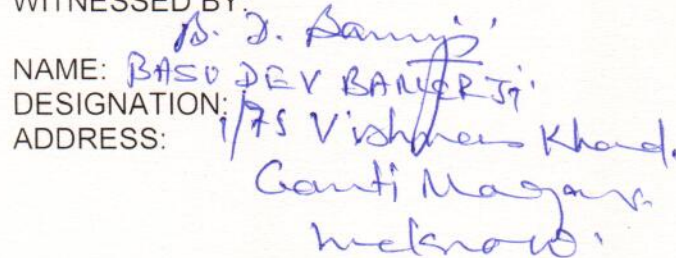 WITNESSED BY:
B. D. Banerji
NAME: BASU DEV BANERJI
DESIGNATION:
ADDRESS: 1/75 Vishwas Khand.
Gomti Nagar.
Lucknow.